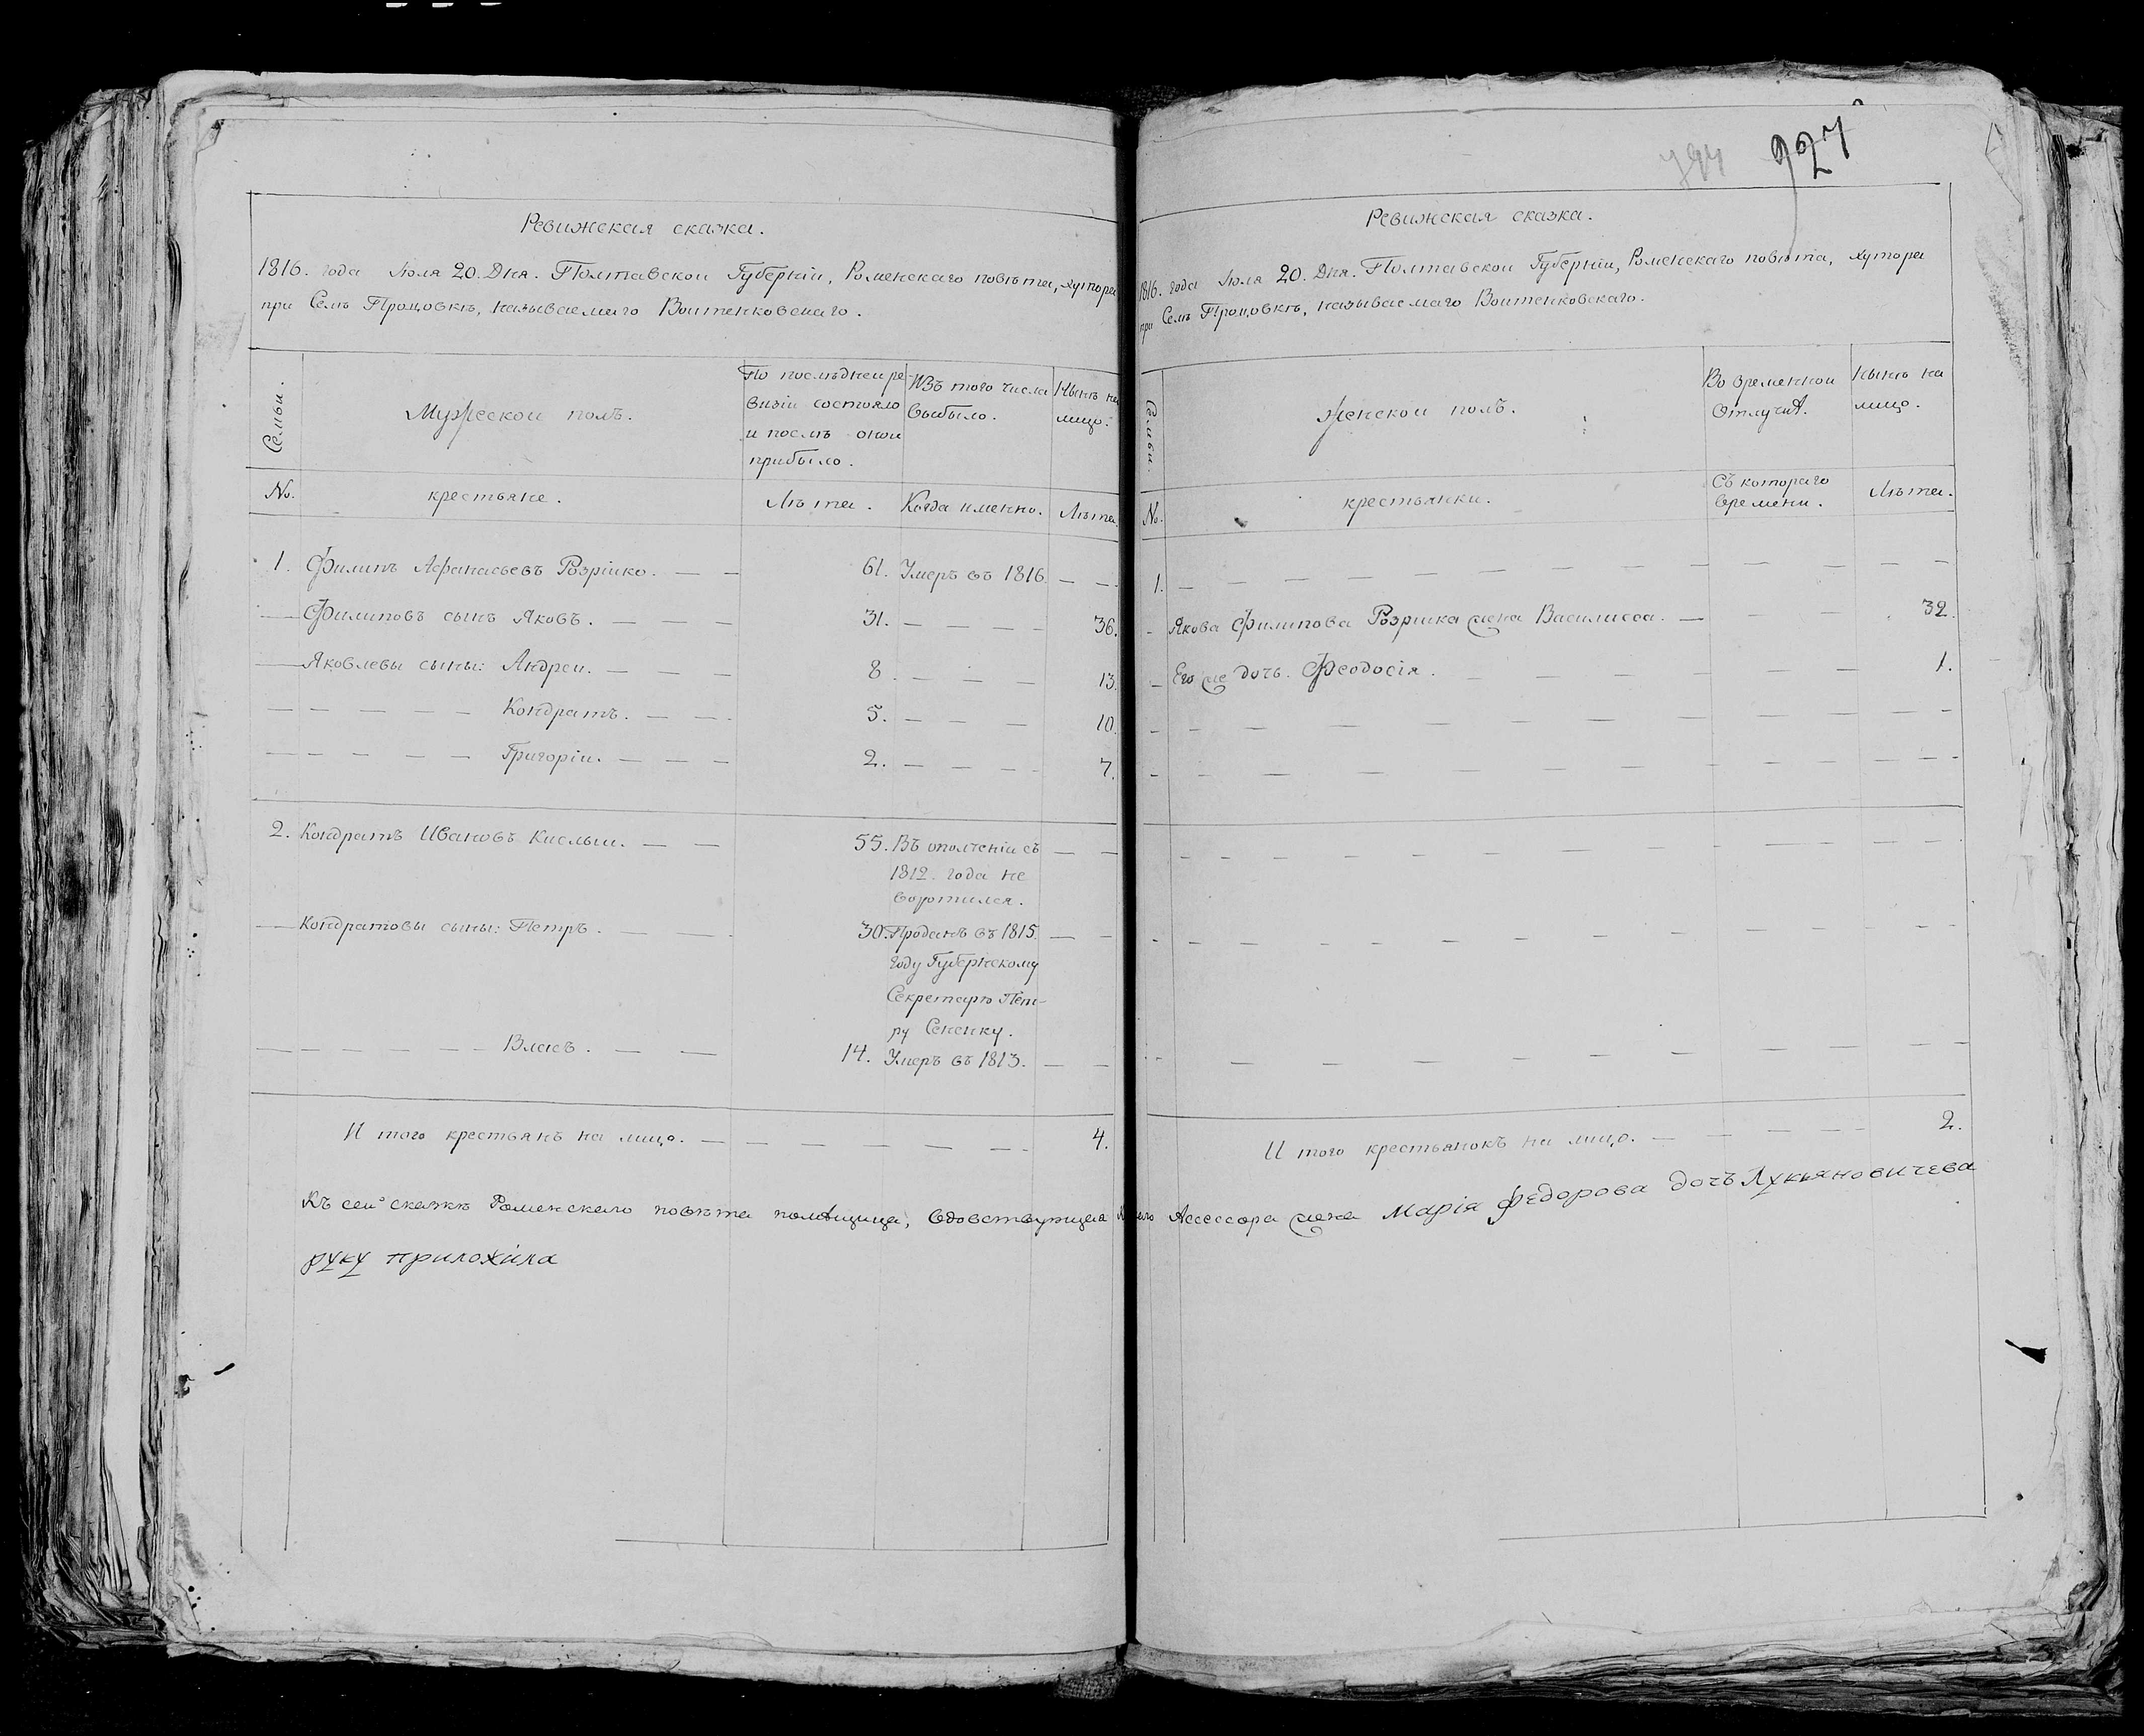 Ревижская сказка.
1816. года Июля 20. Дня. Полтавской Губерніи, Роменскаго повѣта, хутора
при Селѣ Процовкѣ, называемаго Воитенковскаго.
Семьи.
Мужескои полъ.
По послѣднеи ре-
визіи состояло
и послѣ онои
прибыло.
Изъ того числа
выбыло.
Нынѣ на
лицо.
№.
крестьяне.
Лѣта.
Когда именно.
Лѣта.
1. Филипъ Афанасьевъ Розрішко. — — 61. Умеръ въ 1816. — —
— Филиповъ сынъ Яковъ. — — — 31. — — — — 36.
— Яковлевы сыны: Андреи. — — — 8. — — — 13.
— — — — — Кондратъ. — — — 5. — — — 10.
— — — — — Григоріи. — — — 2. — — — — 7.
2. Кондратъ Ивановъ Кислыи. — — 55. Въ ополченіи съ — —
1812. года не
воротился.
— Кондратовы сыны: Петръ. — — 30. Проданъ въ 1815. — —
году Губернскому
Секретарю Пет-
ру Сененку.
— — — — — — Власъ. — — 14. Умеръ въ 1813. — —
И того крестьянъ на лицо. — — — — — — — 4.
794 927
Ревижская сказка.
1816. года Июля 20. Дня. Полтавской Губерніи, Роменскаго повѣта, хутора
при Селѣ Процовкѣ, называемаго Воитенковскаго.
Семьи.
Женскои полъ.
Во временнои
отлучкѣ.
Нынѣ на
лицо.
№.
крестьянки.
Съ котораго
времени.
Лѣта.
1. — — — — — — — — — — — — —
- Якова Филипова Розришка жена Василисса. — — — 32.
- Его же дочь. Феодосія. — — — — — — 1.
И того крестьянокъ на лицо. — — — — — 2.
Къ сеи сказкѣ Роменскаго повѣта помѣщица, вдовствующая Асессора жена Марія Федорова дочь Лукьяновичева
руку приложила